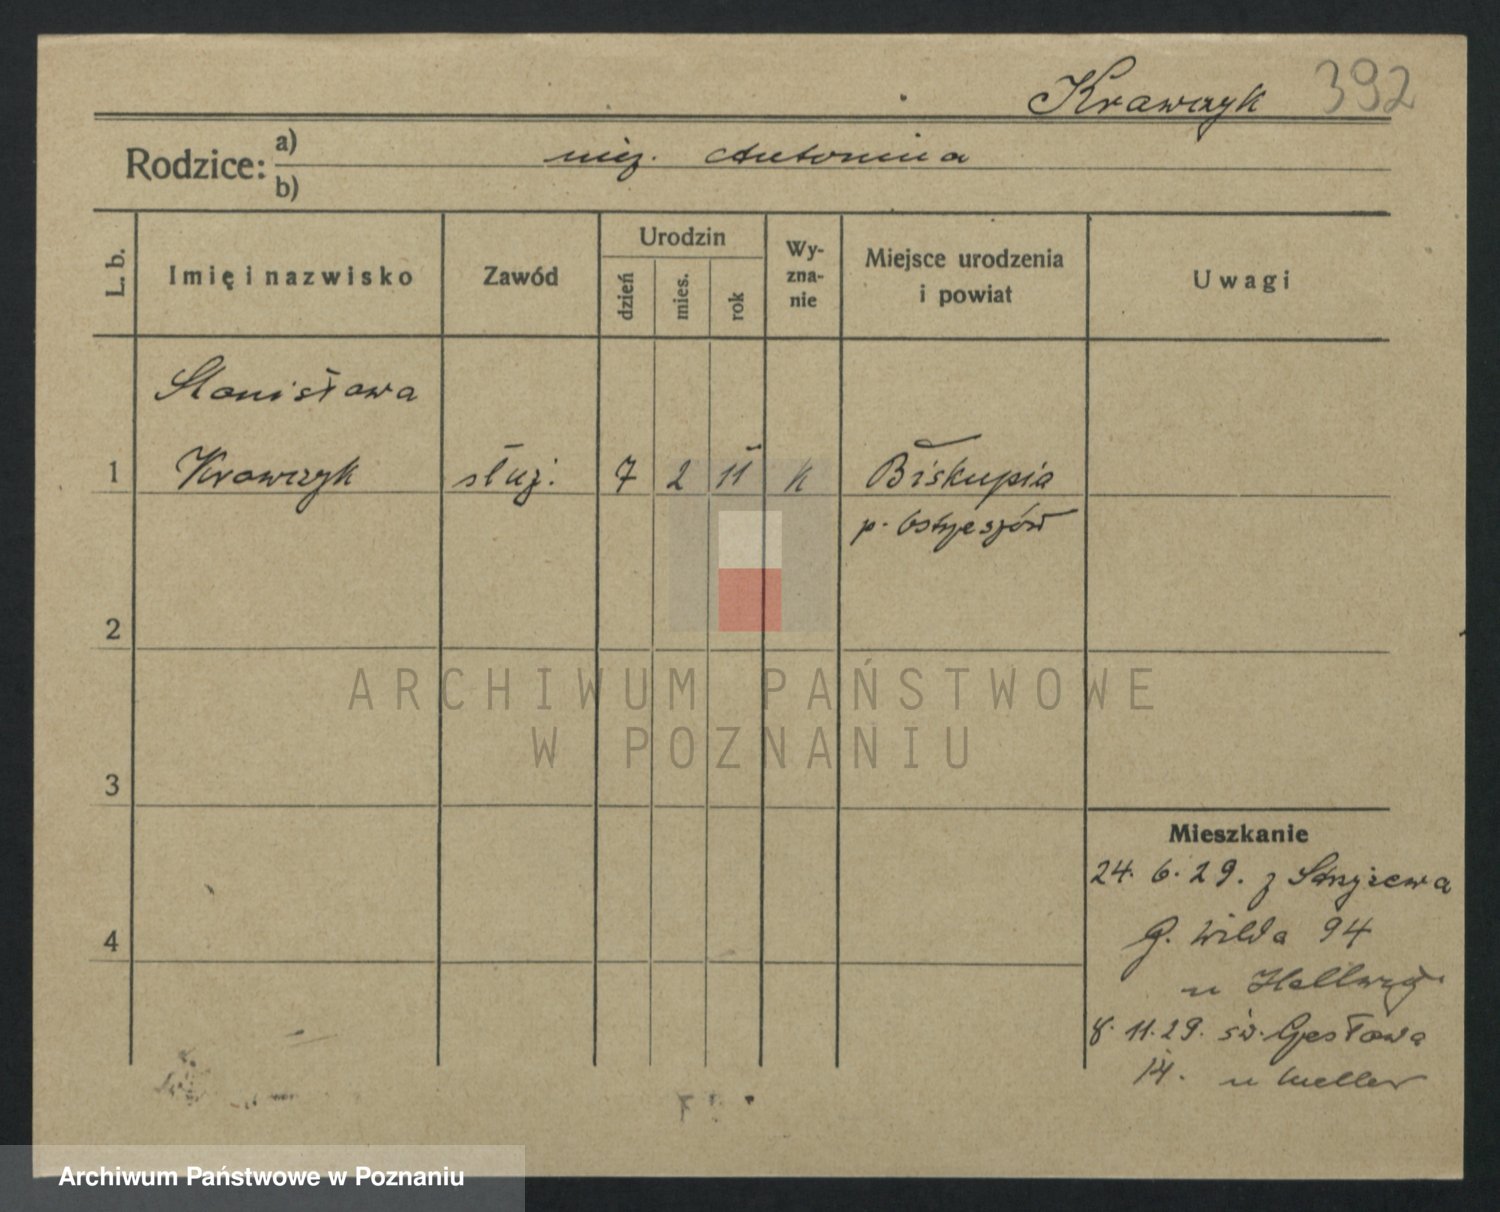 Krawczyk 392
Rodzice: a) niez. Antonina
b)
L. b. Imię i nazwisko Zawód Urodzin dzień mies. rok Wy-zna-nie Miejsce urodzenia i powiat Uwagi
Stanisława
1 Krawczyk służ. 7 2 11 k Biskupia
p. Ostrzeszów
2
ARCHIWUM PAŃSTWOWE
W POZNANIU
3
Mieszkanie
24. 6. 29. z Strzyżewa
4 G. Wilda 94
u Hellwig
8. 11. 29. św.
14. u
Archiwum Państwowe w Poznaniu